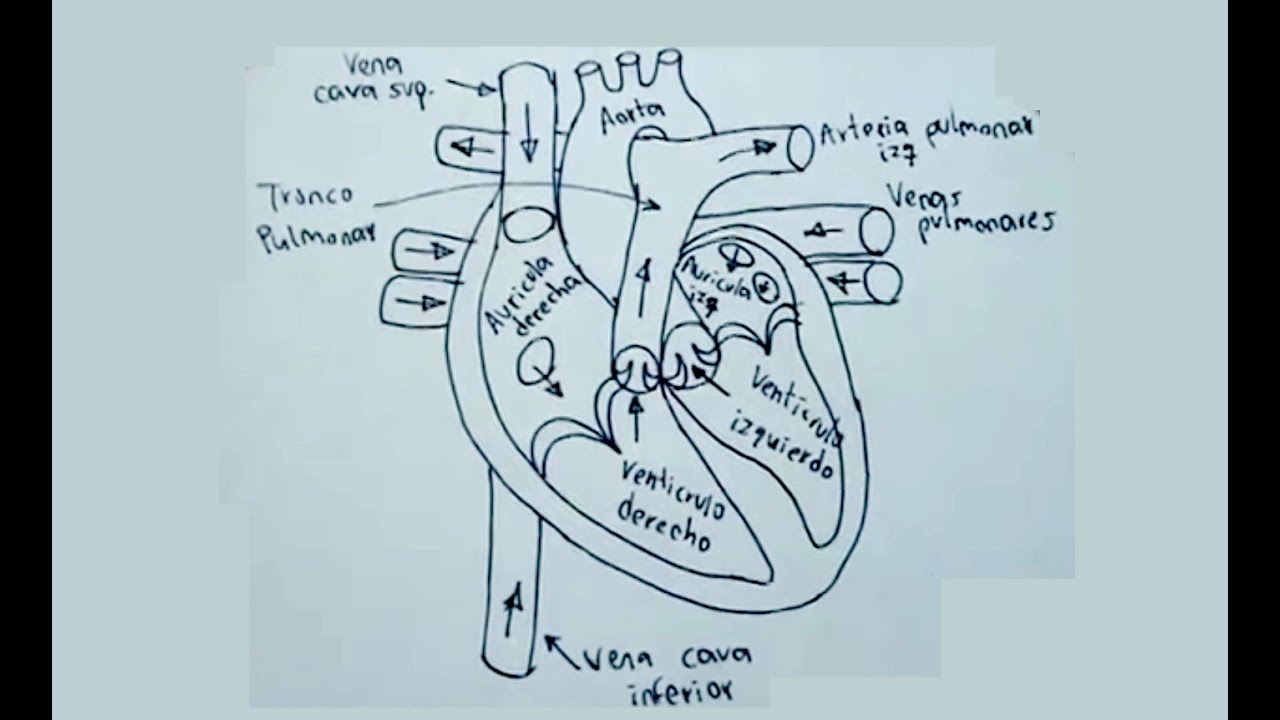 Vena
cava sup.
Aorta
Arteria pulmonar
izq
Tronco
Pulmonar
Venas
pulmonares
Auricula
derecha
Auricula
izq
Ventícrulo
izquierdo
Ventícrulo
derecho
Vena cava
inferior